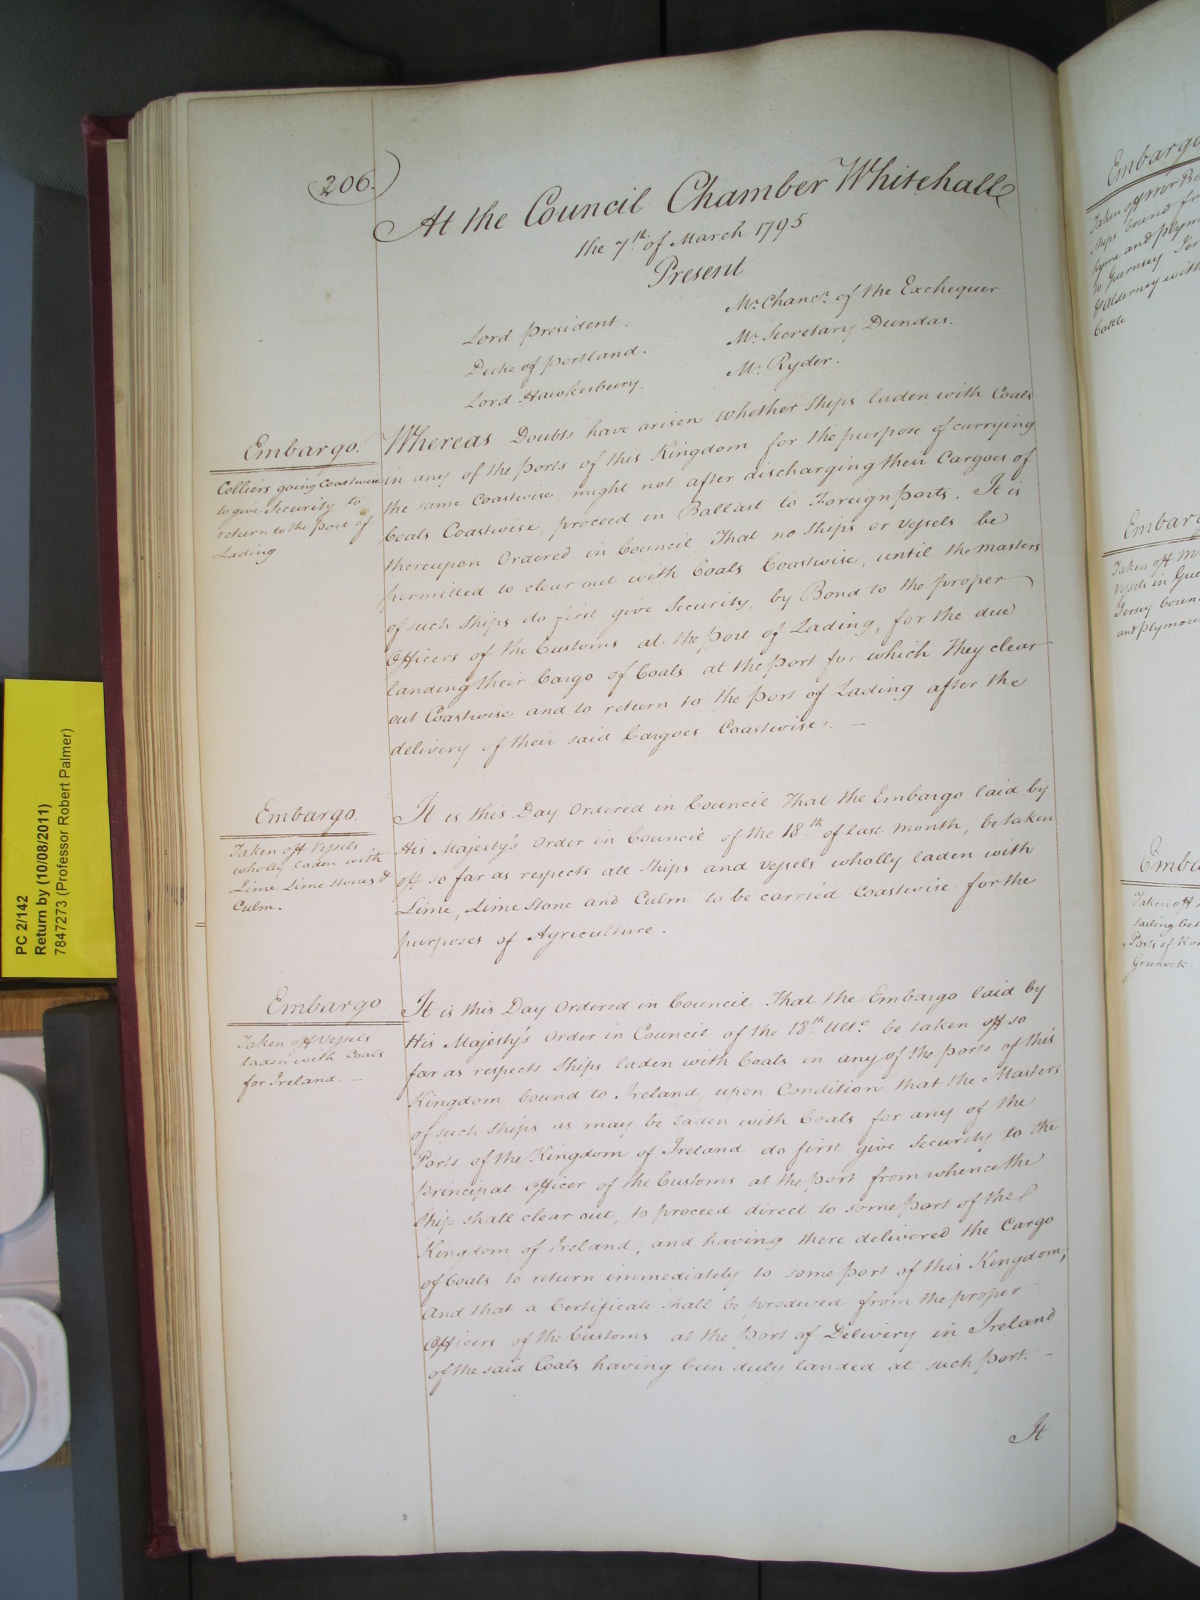 206.
At the Council Chamber Whitehall
the 7th of March 1795
Present
Lord President.
Duke of Portland.
Lord Hawkesbury.
Mr. Chancr. of the Exchequer
Mr. Secretary Dundas.
Mr. Ryder.
Embargo.
Colliers going Coastwise
to give Security to
return to the Port of
Lading
Whereas Doubts have arisen whether Ships laden with Coals
in any of the Ports of this Kingdom for the purpose of carrying
the same Coastwise, might not after discharging their Cargoes of
Coals Coastwise, proceed in Ballast to Foreign Parts. It is
thereupon Ordered in Council That no Ships or Vessels be
permitted to clear out with Coals Coastwise, until the Masters
of such Ships do first give Security, by Bond to the proper
Officers of the Customs at the Port of Lading, for the due
landing their Cargo of Coals at the Port for which They clear
out Coastwise and to return to the Port of Lading after the
delivery of their said Cargoes Coastwise. —
Embargo.
Taken off Vessels
wholly laden with
Lime Lime stones &
Culm.
It is this Day Ordered in Council That the Embargo laid by
His Majesty's Order in Council of the 18th of last Month, be taken
off so far as respects all Ships and Vessels wholly laden with
Lime, Lime Stone and Culm to be carried Coastwise for the
purposes of Agriculture.
Embargo
Taken off Vessels
laden with Coals
for Ireland. —
It is this Day Ordered in Council That the Embargo laid by
His Majesty's Order in Council of the 18th Ulto. be taken off so
far as respects Ships laden with Coals in any of the Ports of this
Kingdom bound to Ireland, upon Condition that the Masters
of such Ships as may be laden with Coals for any of the
Ports of the Kingdom of Ireland do first give Security to the
principal Officer of the Customs at the Port from whence the
Ship shall clear out, to proceed direct to some Port of the
Kingdom of Ireland, and having there delivered the Cargo
of Coals to return immediately to some Port of this Kingdom;
And that a Certificate shall be produced from the proper
Officers of the Customs at the Port of Delivery in Ireland
of the said Coals having been duly landed at such Port. —
It
PC 2/142
Return by (10/08/2011)
7847273 (Professor Robert Palmer)
Taken off
ships bound
Lyme and
to Guernsey
Alderney with
Cattle
Taken off
Vessels in
Jersey
and Plymou
Taken off
Ports of
Greenock.